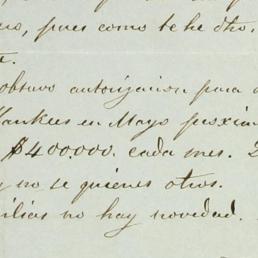 no, pues como te he dho.
te.
obtuvo autorizacion para
Yankees en Mayo proxim
$400.000. cada mes.
y no se quienes otros.
ilias no hay novedad.